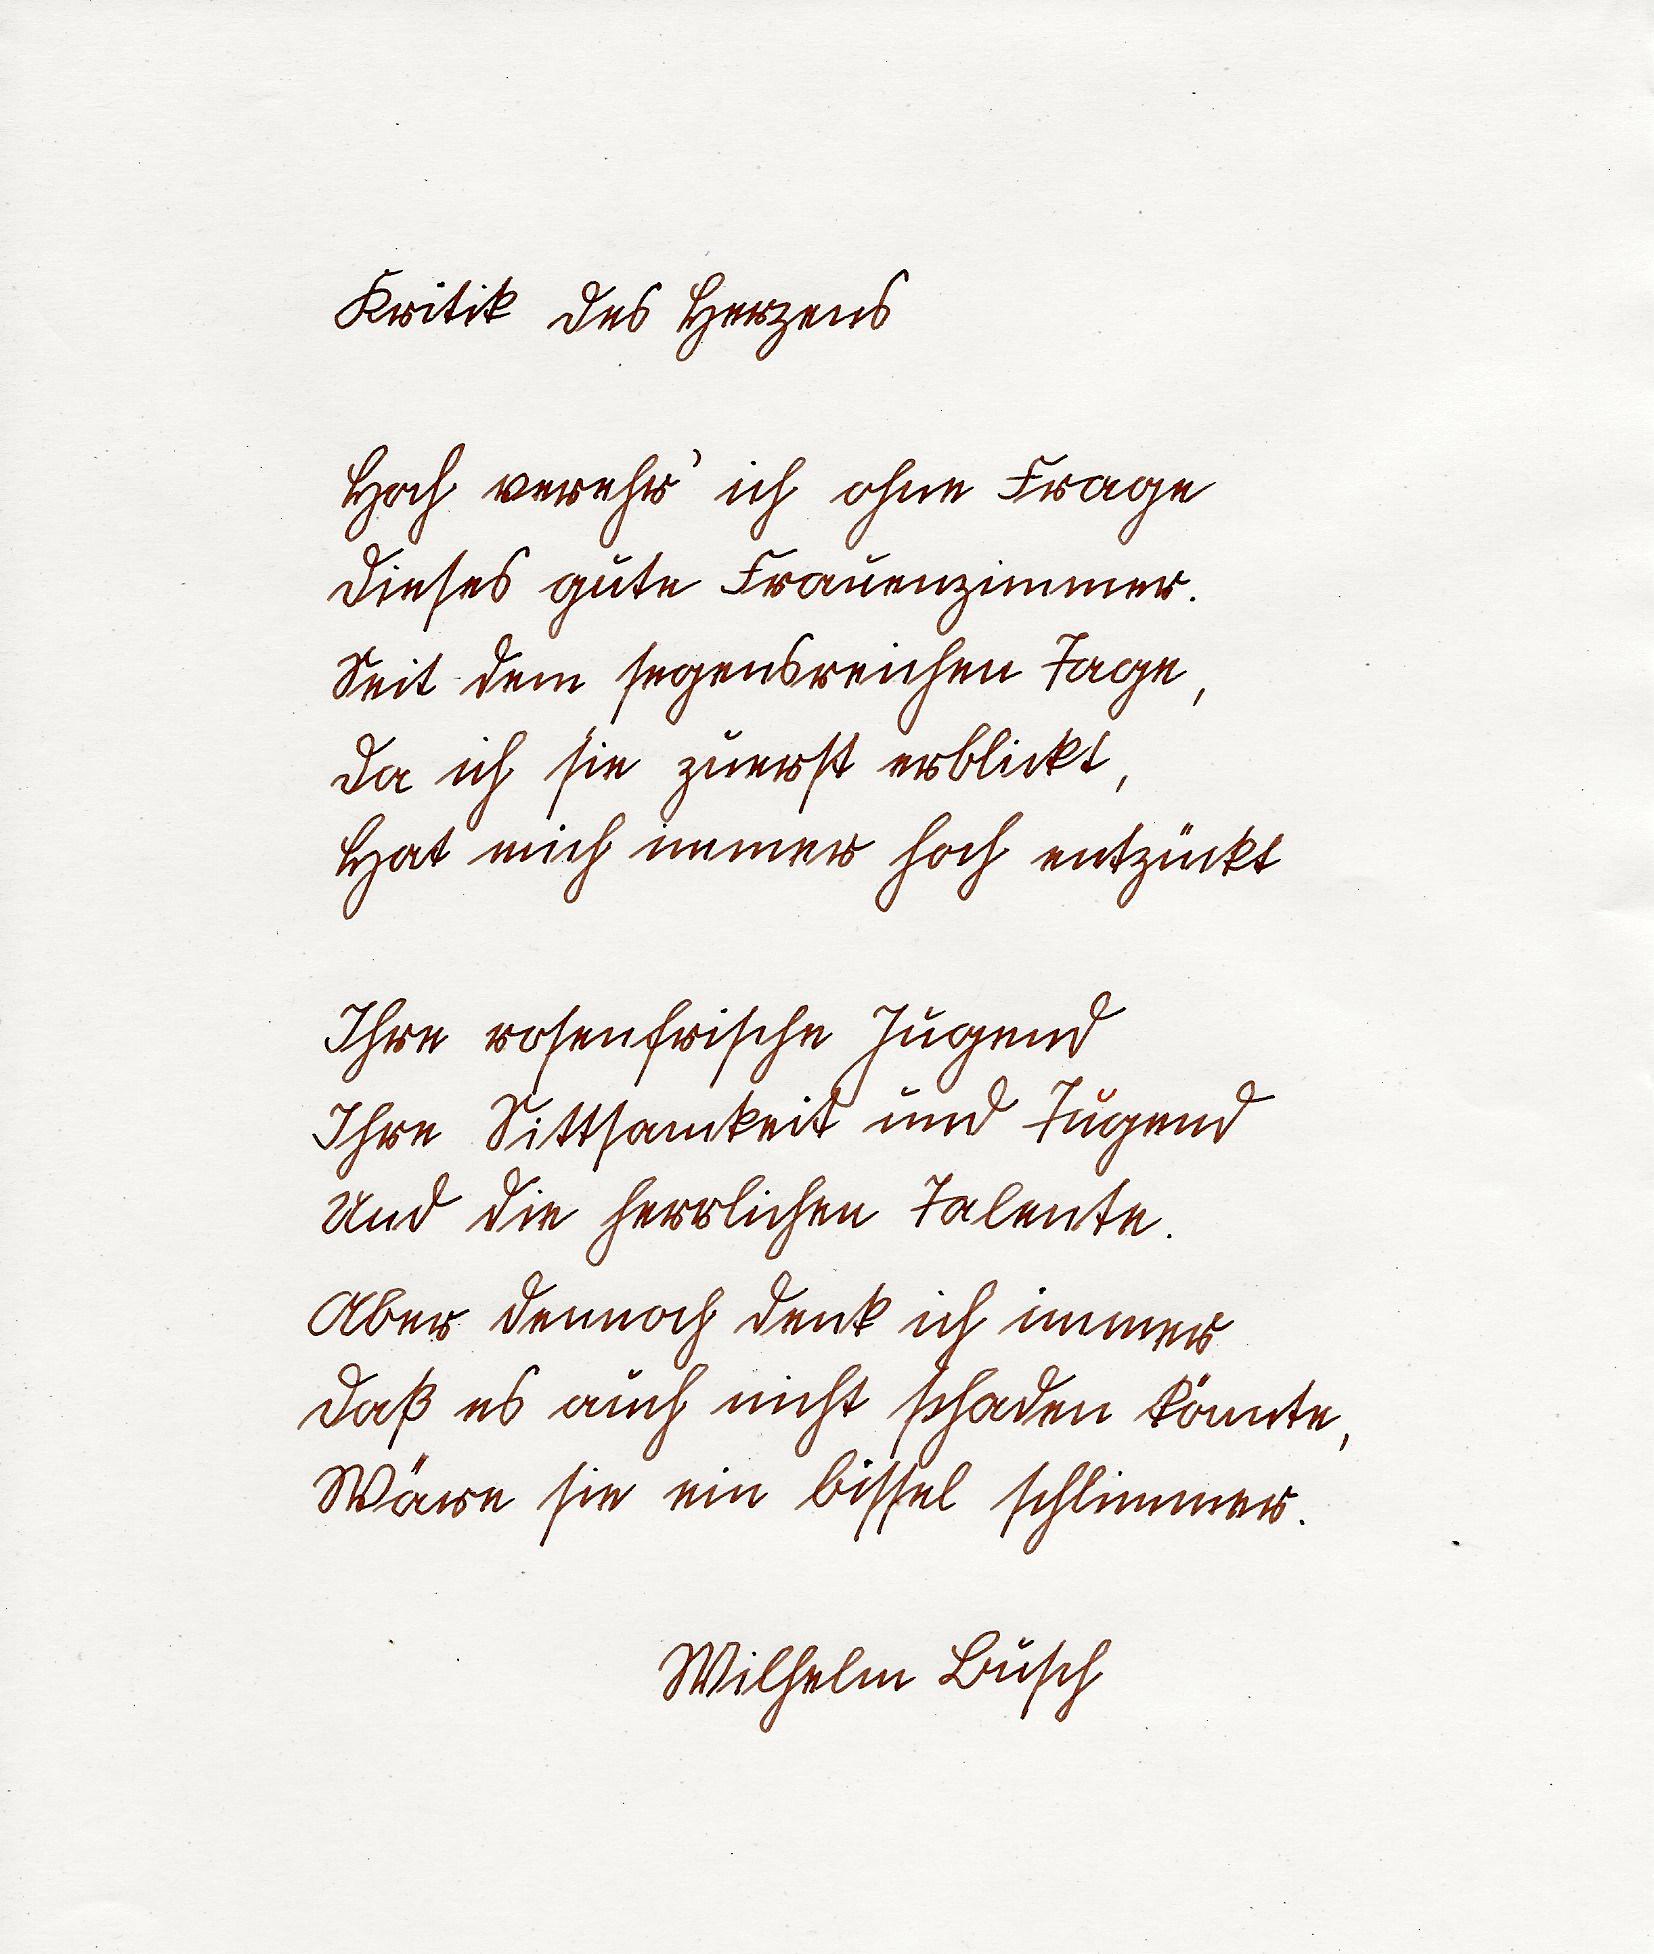 Kritik des Herzens
Hoch verehr' ich ohne Frage
Dieses gute Frauenzimmer.
Seit dem segensreichen Tage,
Da ich sie zuerst erblickt,
Hat mich immer hoch entzückt
Ihre rosenfrische Jugend
Ihre Sittsamkeit und Tugend
Und die herrlichen Talente.
Aber dennoch denk ich immer
Daß es auch nicht schaden könnte,
Wäre sie ein bissel schlimmer.
Wilhelm Busch